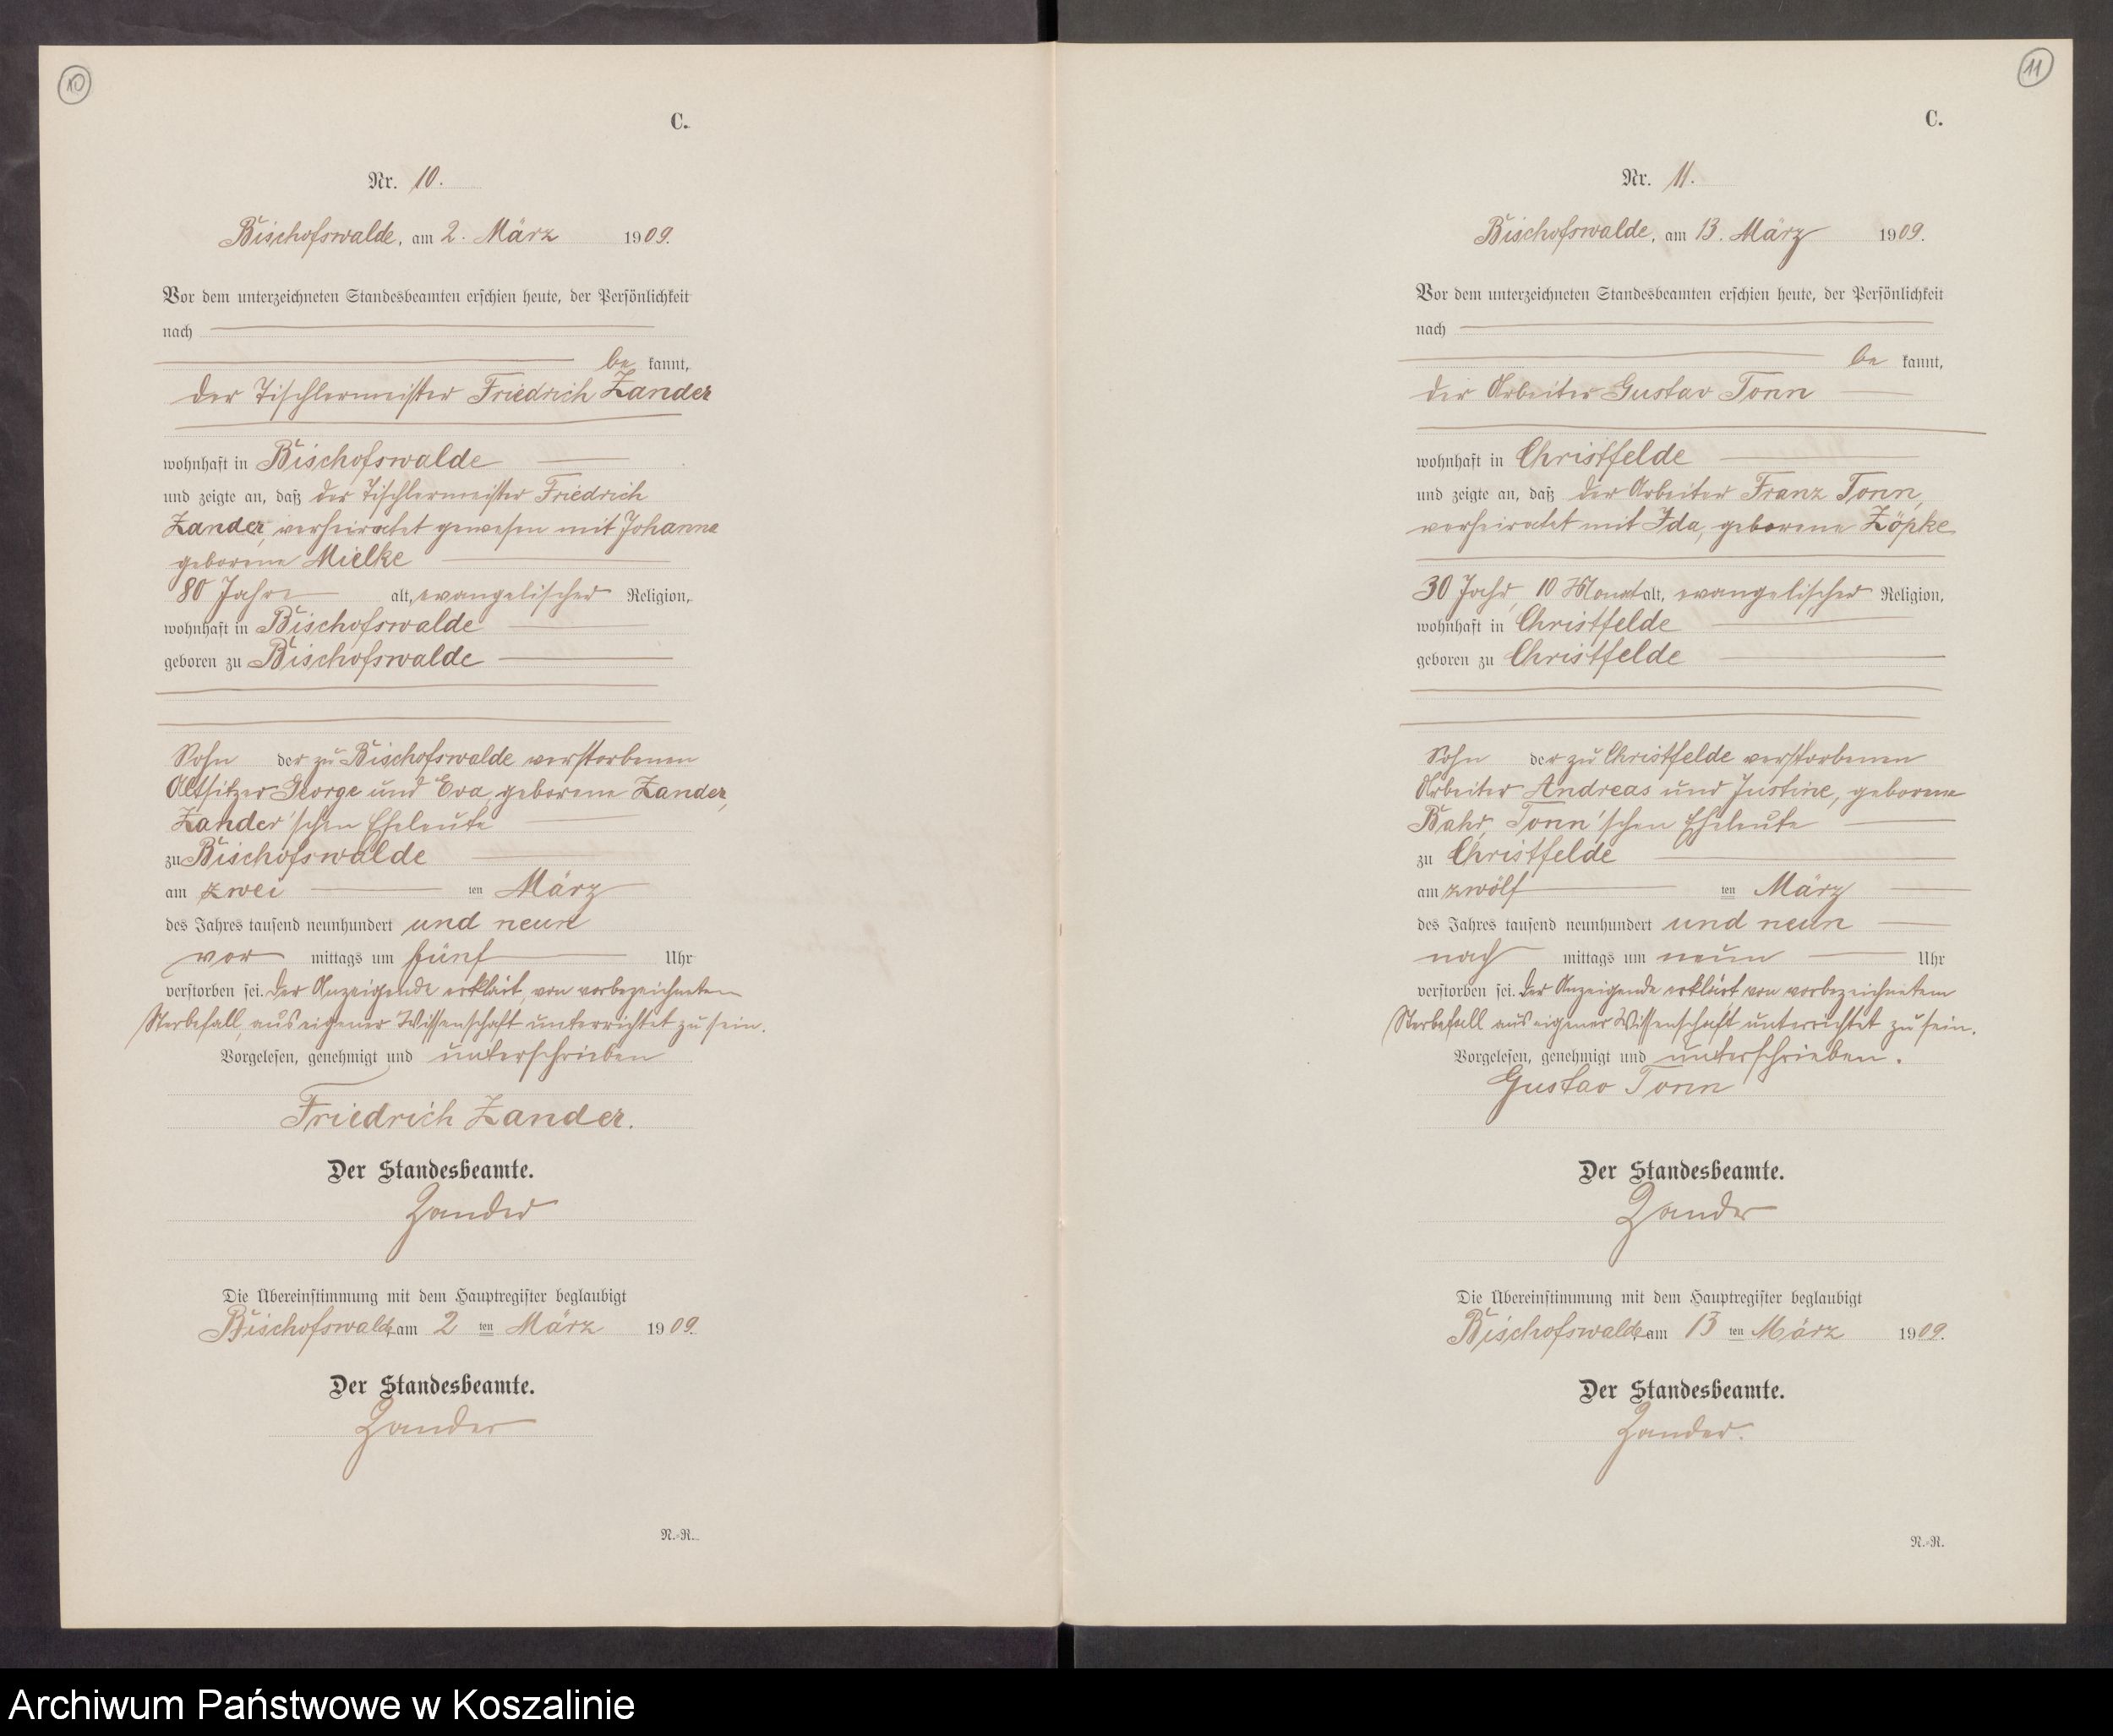 10
C.
Nr. 10.
Bischofswalde, am 2. März 1909.
Vor dem unterzeichneten Standesbeamten erschien heute, der Persönlichkeit
nach
be kannt,
der Tischlermeister Friedrich Zander
wohnhaft in Bischofswalde
und zeigte an, daß der Tischlermeister Friedrich
Zander, verheiratet gewesen mit Johanna
geborene Mielke
80 Jahre alt, evangelischer Religion,
wohnhaft in Bischofswalde
geboren zu Bischofswalde
Sohn der zu Bischofswalde verstorbenen
Altsitzer George und Eva, geborene Zander,
Zander'schen Eheleute
zu Bischofswalde
am zwei ten März
des Jahres tausend neunhundert und neun
vor mittags um fünf Uhr
verstorben sei. Der Anzeigende erklärt, von vorbezeichneten
Sterbefall, aus eigener Wissenschaft unterrichtet zu sein.
Vorgelesen, genehmigt und unterschrieben
Friedrich Zander.
Der Standesbeamte.
Zander
Die Übereinstimmung mit dem Hauptregister beglaubigt
Bischofswalde, am 2 ten März 1909.
Der Standesbeamte.
Zander
N.-R.
11
C.
Nr. 11.
Bischofswalde, am 13. März 1909.
Vor dem unterzeichneten Standesbeamten erschien heute, der Persönlichkeit
nach
be kannt,
der Arbeiter Gustav Tonn
wohnhaft in Christfelde
und zeigte an, daß der Arbeiter Franz Tonn,
verheiratet mit Ida, geborene Zöpke
30 Jahr, 10 Monat alt, evangelischer Religion,
wohnhaft in Christfelde
geboren zu Christfelde
Sohn der zu Christfelde verstorbenen
Arbeiter Andreas und Justine, geborene
Bahr, Tonn'schen Eheleute
zu Christfelde
am zwölf ten März
des Jahres tausend neunhundert und neun
nach mittags um neun Uhr
verstorben sei. Der Anzeigende erklärt von vorbezeichnetem
Sterbefall aus eigener Wissenschaft unterrichtet zu sein.
Vorgelesen, genehmigt und unterschrieben.
Gustav Tonn
Der Standesbeamte.
Zander
Die Übereinstimmung mit dem Hauptregister beglaubigt
Bischofswalde, am 13 ten März 1909.
Der Standesbeamte.
Zander.
N.-R.
Archiwum Państwowe w Koszalinie